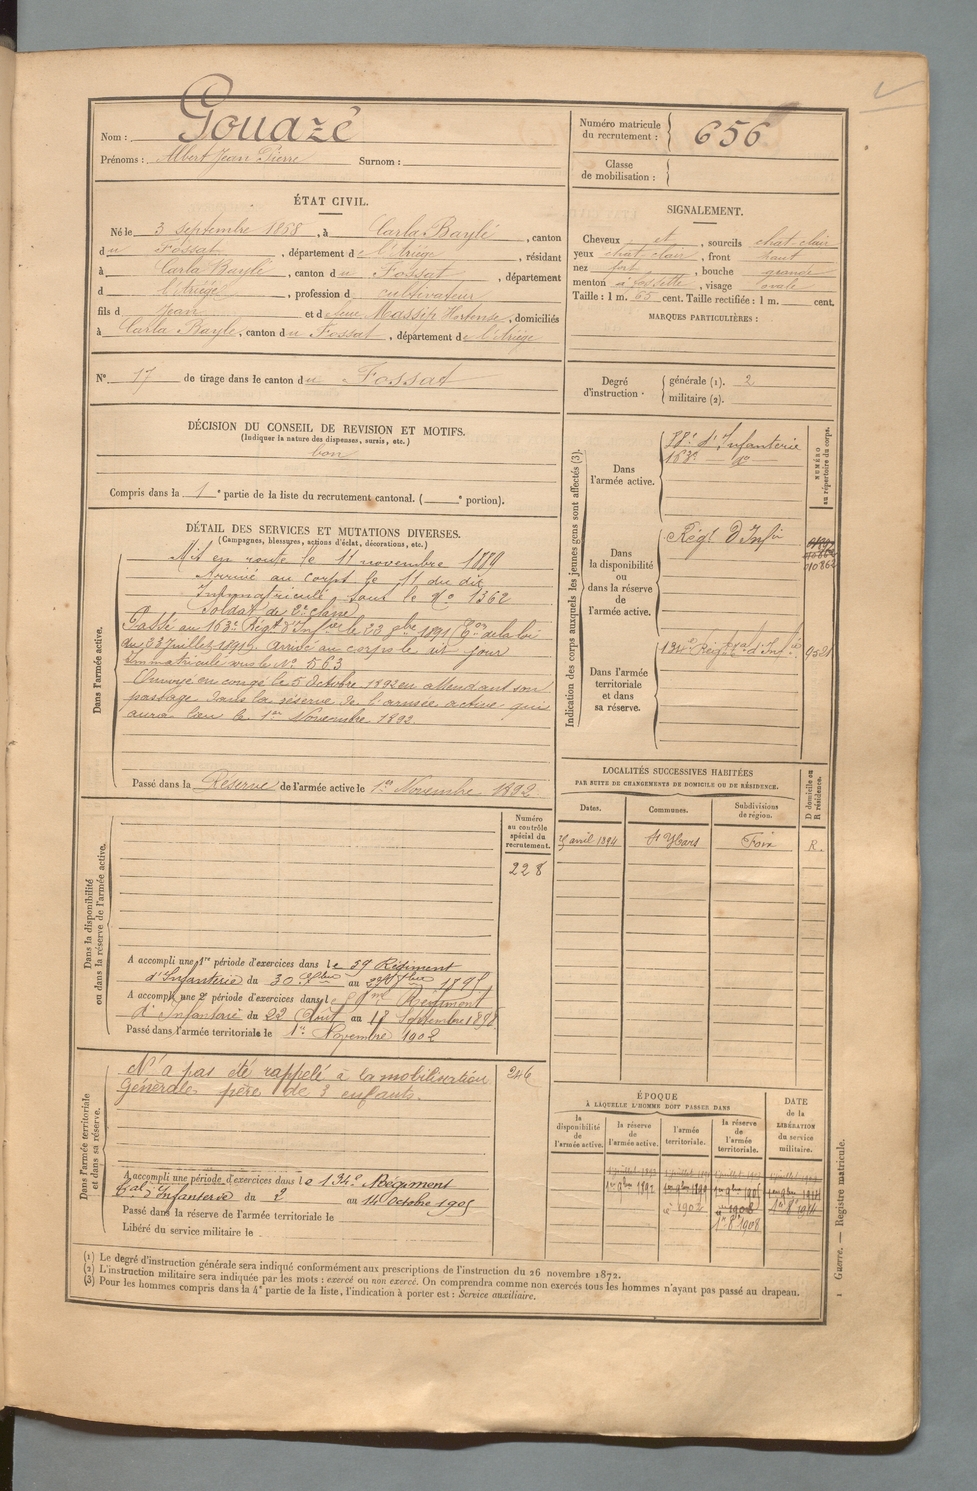 Nom : Gouazé
Prénoms : Albert Jean Pierre Surnom :
Numéro matricule
du recrutement : 656
Classe
de mobilisation :
ÉTAT CIVIL.
Né le 3 septembre 1868, à Carla Bayle, canton
du Fossat, département de l'Ariège, résidant
à Carla Bayle, canton du Fossat, département
d l'Ariège, profession d cultivateur
fils d Jean et d feue Massip Hortense, domiciliés
à Carla Bayle, canton du Fossat, département de l'Ariège
N° 17 de tirage dans le canton du Fossat
SIGNALEMENT.
Cheveux et, sourcils chat-clair
yeux chat clair, front haut
nez fort, bouche grande
menton à fossette, visage ovale
Taille : 1 m. 65 cent. Taille rectifiée : 1 m. cent.
MARQUES PARTICULIÈRES :
Degré
d'instruction · générale (1). 2
militaire (2).
DÉCISION DU CONSEIL DE REVISION ET MOTIFS.
(Indiquer la nature des dispenses, sursis, etc.)
bon
Compris dans la 1e partie de la liste du recrutement cantonal. ( e portion).
DÉTAIL DES SERVICES ET MUTATIONS DIVERSES.
(Campagnes, blessures, actions d'éclat, décorations, etc.)
Dans l'armée active.
Mis en route le 11 novembre 1889
Arrivé au corps le 11 du dit
Immatriculé sous le No 1362
Soldat de 2e classe
Passé au 163e Régt d'Infie le 23 9bre 1891 de la loi
du 23 Juillet 1891). arrivé au corps le dit jour
Immatriculé sous le No 563
Envoyé en congé le 5 Octobre 1892 en attendant son
passage dans la réserve de l'armée active qui
aura lieu le 1er Novembre 1892
Passé dans la Réserve de l'armée active le 1er Novembre 1892
Indication des corps auxquels les jeunes gens sont affectés (3).
NUMÉRO
au répertoire du corps.
Dans
l'armée active.
88e d'Infanterie
163e do
Dans
la disponibilité
ou
dans la réserve
de
l'armée active.
Régt D'Infie
010862
Dans l'armée
territoriale
et dans
sa réserve.
134e Régt tal d'Infie
9521
LOCALITÉS SUCCESSIVES HABITÉES
PAR SUITE DE CHANGEMENTS DE DOMICILE OU DE RÉSIDENCE.
D domicile ou
R résidence.
Dates. Communes. Subdivisions
de région.
avril 1894 St Ybars Foix R.
Dans la disponibilité
ou dans la réserve de l'armée active.
Numéro
au contrôle
spécial du
recrutement.
228
A accompli une 1re période d'exercices dans le 59 Régiment
d'Infanterie du 30 au 1895
A accompli une 2e période d'exercices dans le Régiment
d'Infanterie du 22 Août au 18 Septembre 1898
Passé dans l'armée territoriale le 1er Novembre 1902
Dans l'armée territoriale
et dans sa réserve.
N'a pas été rappelé à la mobilisation
Générale père de 3 enfants.
246
A accompli une période d'exercices dans le 134e Régiment
tal d'Infanterie du 2 au 14 octobre 1905
Passé dans la réserve de l'armée territoriale le
Libéré du service militaire le
ÉPOQUE
À LAQUELLE L'HOMME DOIT PASSER DANS
la
disponibilité
de
l'armée active.
la réserve
de
l'armée active.
l'armée
territoriale.
la réserve
de
l'armée
territoriale.
DATE
de la
LIBÉRATION
du service
militaire.
1er 9bre 1892
1902
1er 8bre 1908
1er 8bre 1914
(1) Le degré d'instruction générale sera indiqué conformément aux prescriptions de l'instruction du 26 novembre 1872.
(2) L'instruction militaire sera indiquée par les mots : exercé ou non exercé. On comprendra comme non exercés tous les hommes n'ayant pas passé au drapeau.
(3) Pour les hommes compris dans la 4e partie de la liste, l'indication à porter est : Service auxiliaire.
1 Guerre. — Registre matricule.